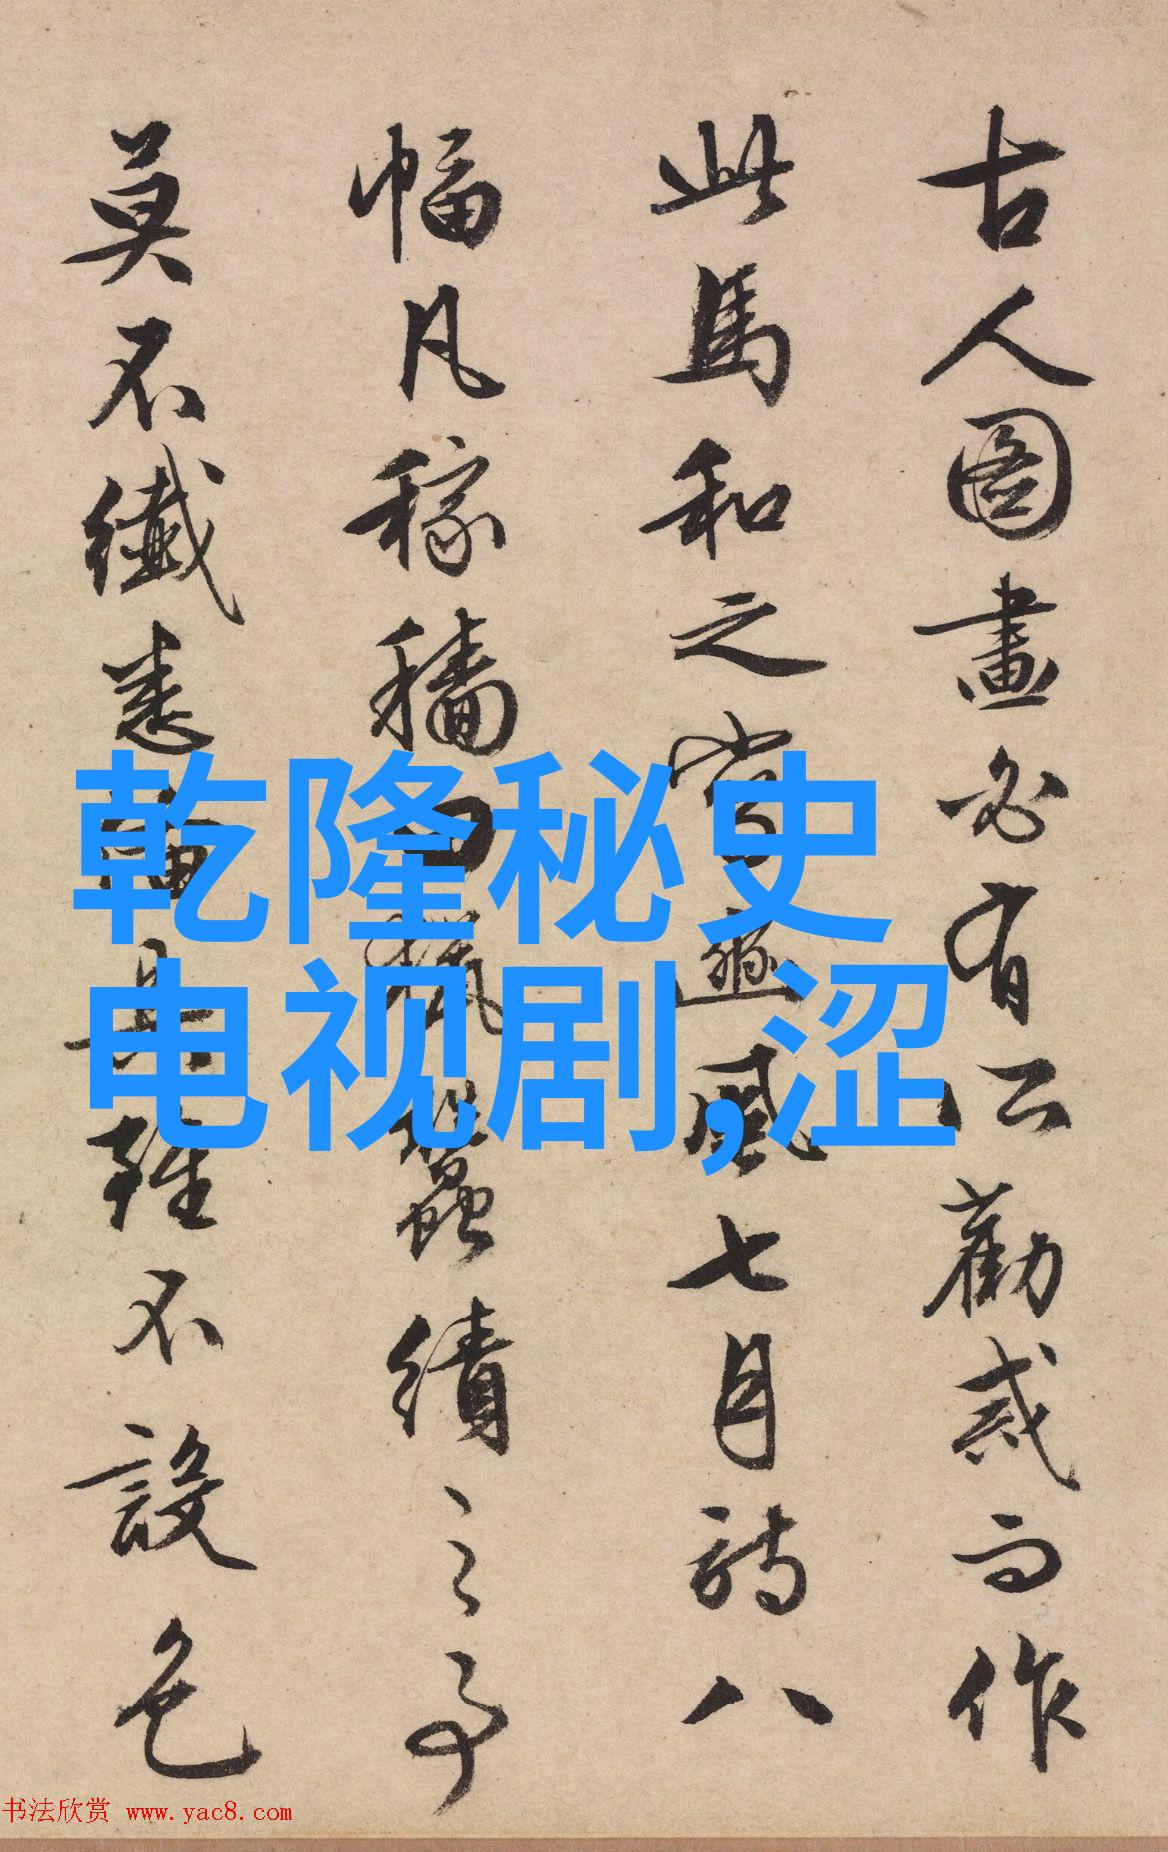 古人圖畫必有所勸戒而作
此馬和之寫豳風七月詩八
幅凡稼穡田獵蠶績之事
莫不纖悉備具雖不設色
乾隆秘史
电视剧,涩
书法欣赏 www.yac8.com